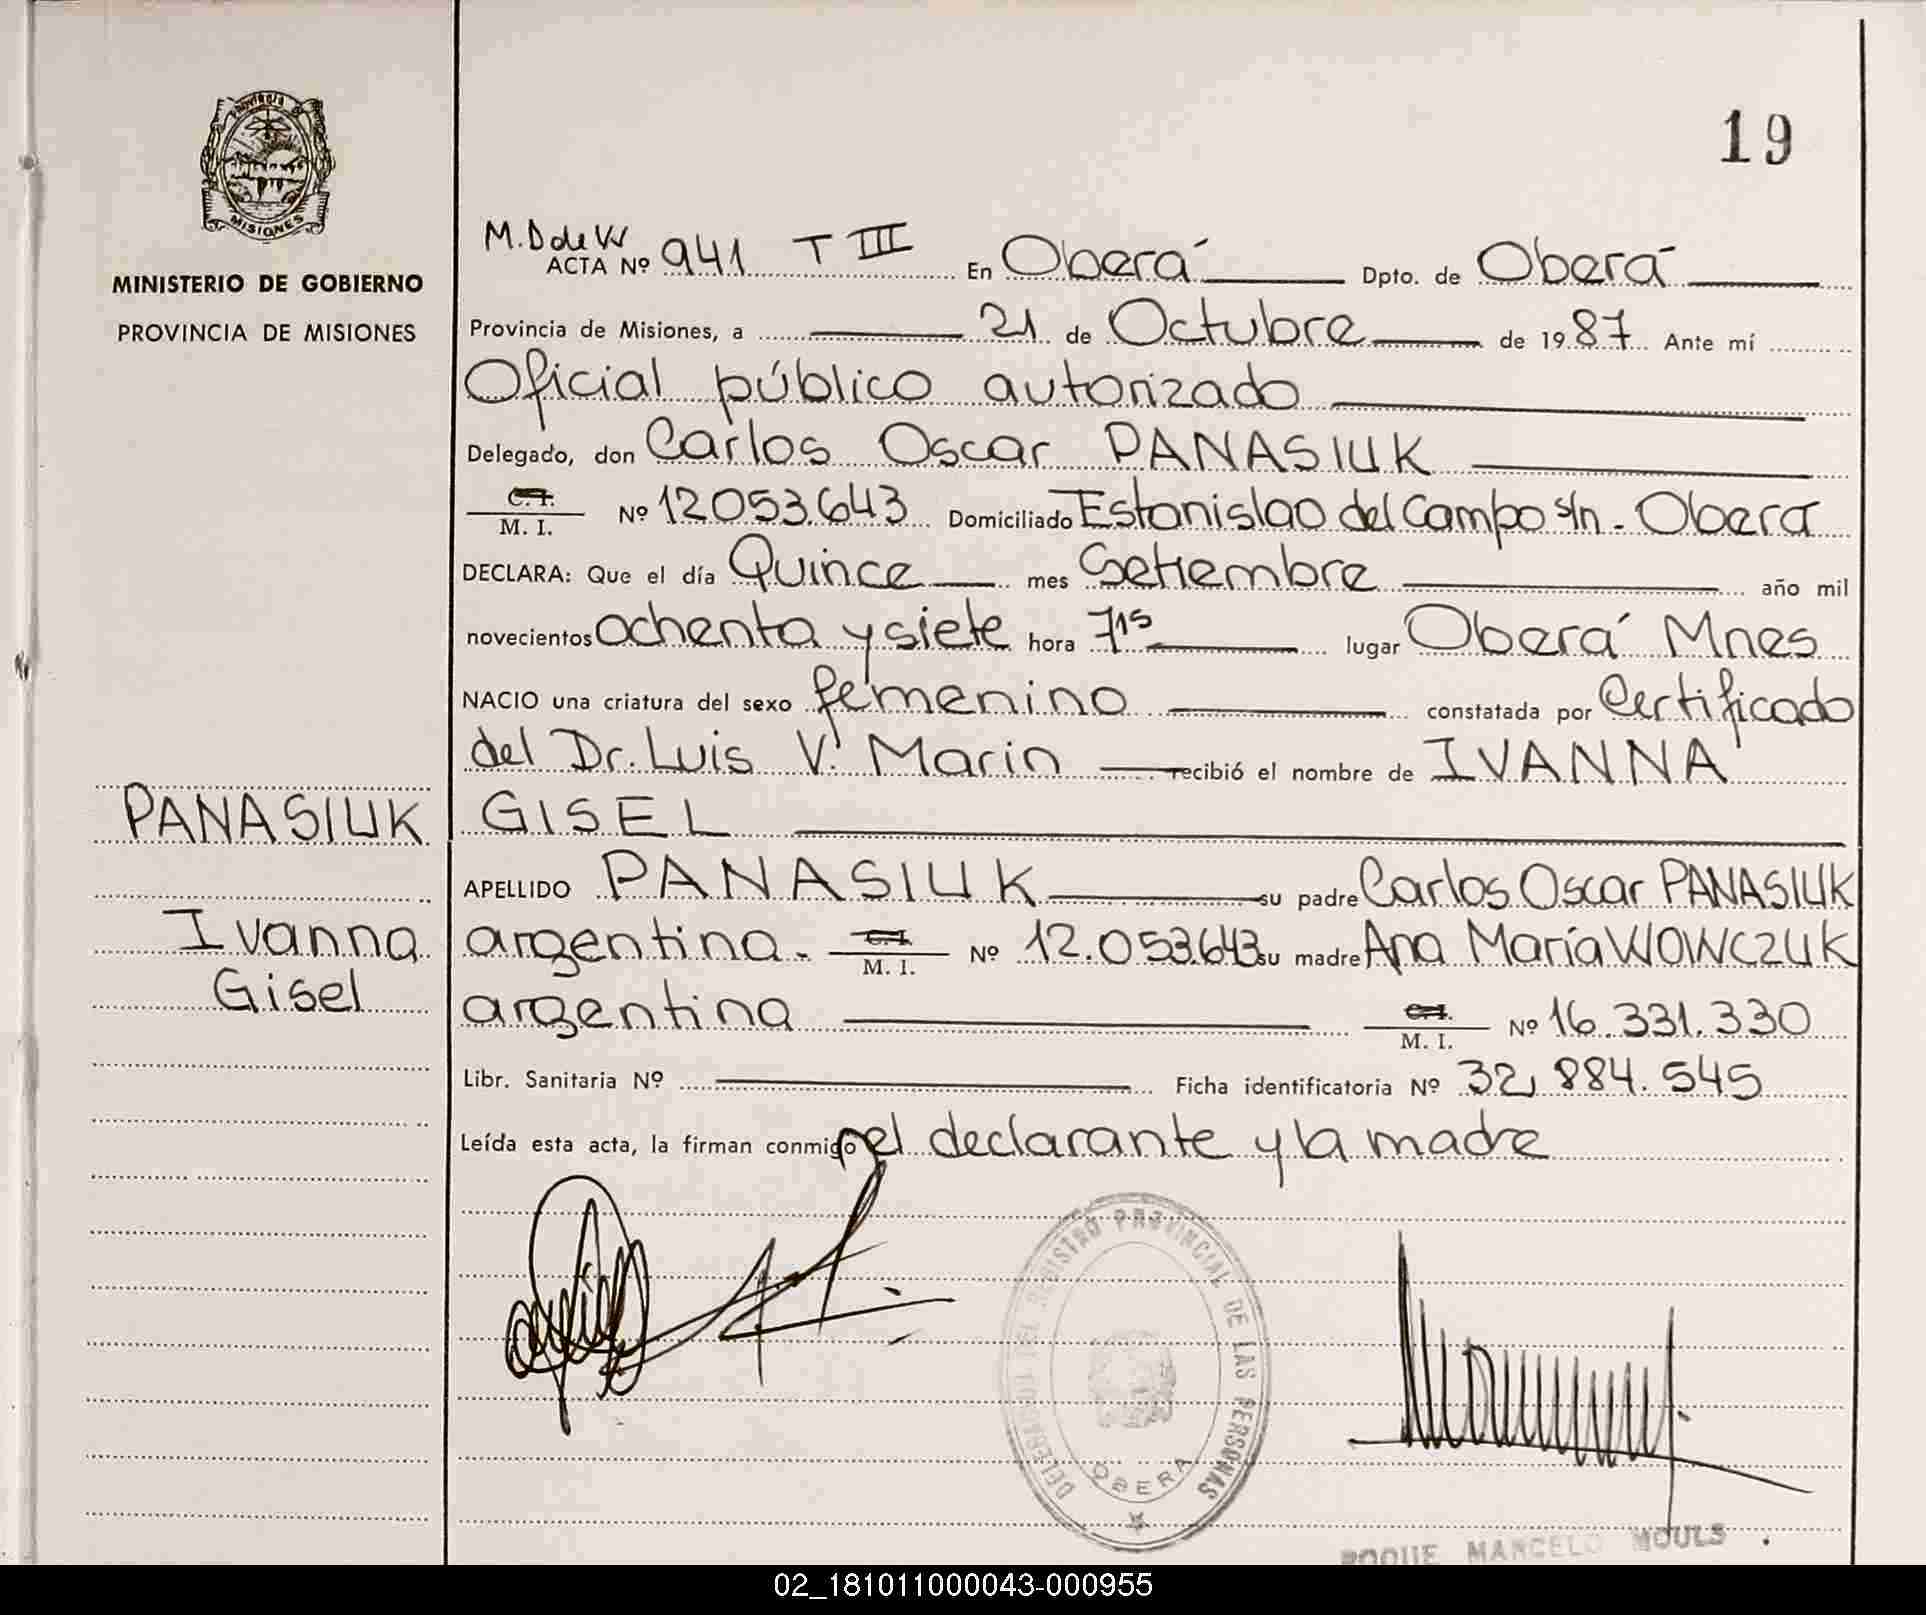 Provincia de
MISIONES
MINISTERIO DE GOBIERNO
PROVINCIA DE MISIONES
PANASIUK
Ivanna
Gisel
19
M.D de W
ACTA Nº 941 T III En Oberá Dpto. de Oberá
Provincia de Misiones, a 21 de Octubre de 1987 Ante mí
Oficial público autorizado
Delegado, don Carlos Oscar PANASIUK
C.I.
M. I. Nº 12053.643 Domiciliado Estanislao del Campo s/n - Obera
DECLARA: Que el día Quince mes Setiembre año mil
novecientos ochenta y siete hora 7 15 lugar Oberá Mnes
NACIO una criatura del sexo femenino constatada por Certificado
del Dr. Luis V. Marin recibió el nombre de IVANNA
GISEL
APELLIDO PANASIUK su padre Carlos Oscar PANASIUK
argentina. C.I. M. I. Nº 12.053.643 su madre Ana María WOWCZUK
argentina C.I. M. I. Nº 16.331.330
Libr. Sanitaria Nº Ficha identificatoria Nº 32,884.545
Leída esta acta, la firman conmigo el declarante y la madre
DELEGACION DEL REGISTRO PROVINCIAL DE LAS PERSONAS
OBERA
ROQUE MARCELO MOULS
02_181011000043-000955